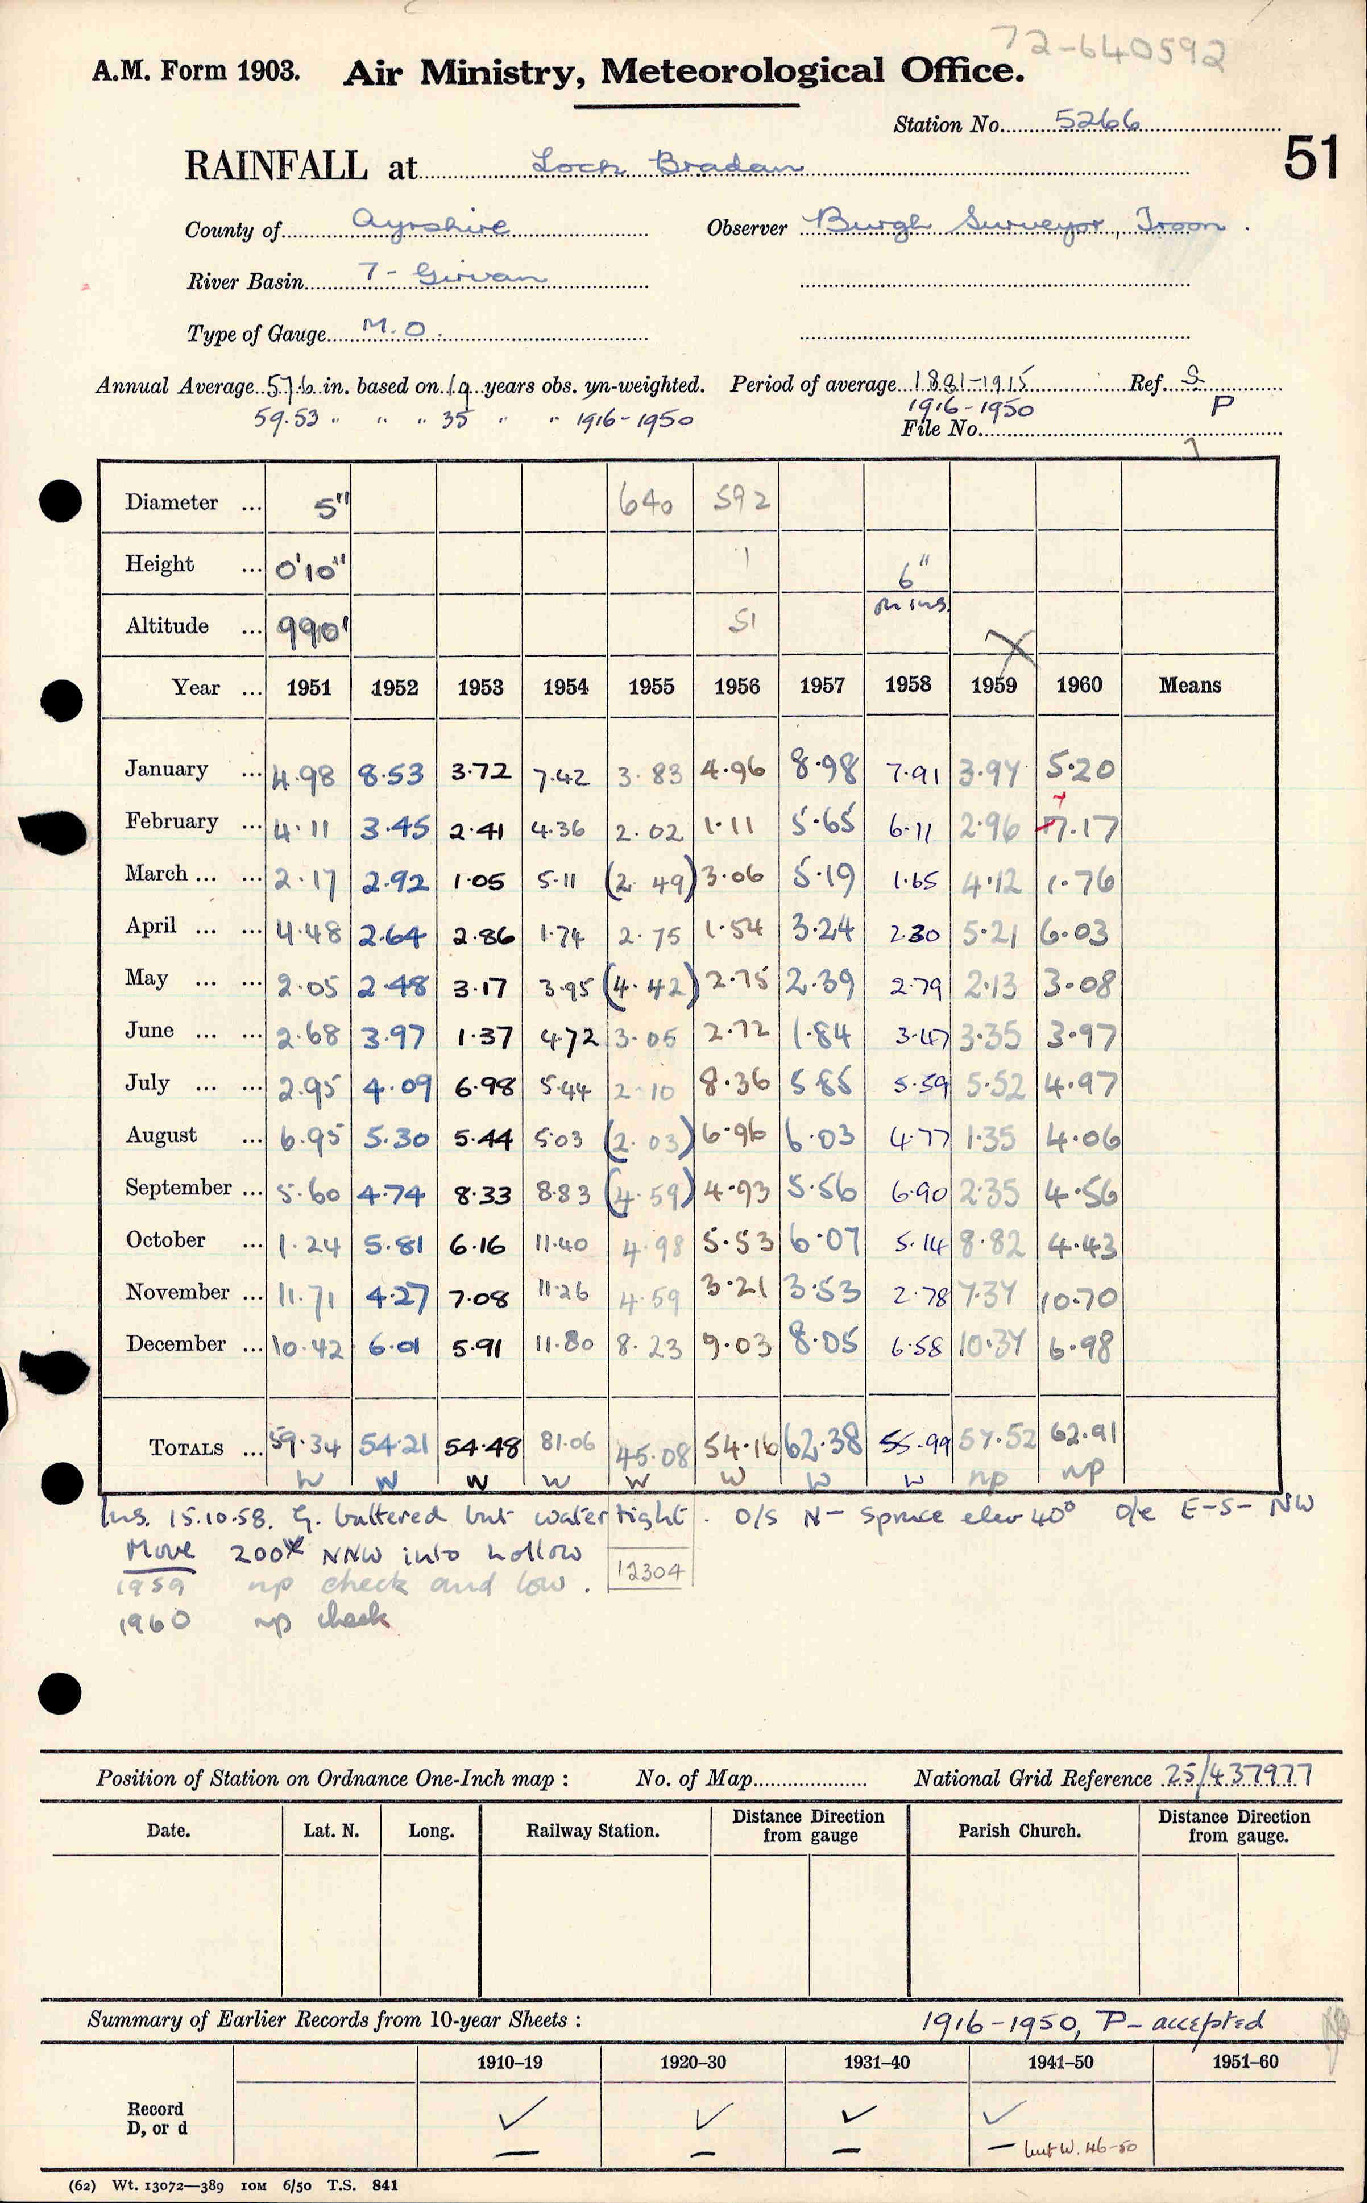 72-640592
A.M. Form 1903. Air Ministry, Meteorological Office.
Station No. 5266
51
RAINFALL at Loch Bradan
County of Ayrshire Observer Burgh Surveyor, Troon.
River Basin 7 - Girvan
Type of Gauge M.O.
Annual Average 57.6 in. based on 19 years obs. yn-weighted. Period of average 1881-1915 Ref. S
59.53 " " " 35 " " 1916-1950 1916-1950 P
File No.
Diameter ... 5" 640 592
Height ... 0'10" 1 6"
on ins.
Altitude ... 990' 51
Year ... 1951 1952 1953 1954 1955 1956 1957 1958 1959 1960 Means
January ... 4.98 8.53 3.72 7.42 3.83 4.96 8.98 7.91 3.97 5.20
February ... 4.11 3.45 2.41 4.36 2.02 1.11 5.65 6.11 2.96 7.17
March ... ... 2.17 2.92 1.05 5.11 (2.49) 3.06 5.19 1.65 4.12 1.76
April ... ... 4.48 2.64 2.86 1.74 2.75 1.54 3.24 2.30 5.21 6.03
May ... ... 2.05 2.48 3.17 3.95 (4.42) 2.75 2.39 2.79 2.13 3.08
June ... ... 2.68 3.97 1.37 4.72 3.05 2.72 1.84 3.47 3.35 3.97
July ... ... 2.95 4.09 6.98 5.44 2.10 8.36 5.85 5.59 5.52 4.97
August ... 6.95 5.30 5.44 5.03 (2.03) 6.96 6.03 4.77 1.35 4.06
September ... 5.60 4.74 8.33 8.83 (4.59) 4.93 5.56 6.90 2.35 4.56
October ... 1.24 5.81 6.16 11.40 4.98 5.53 6.07 5.14 8.82 4.43
November ... 11.71 4.27 7.08 11.26 4.59 3.21 3.53 2.78 7.37 10.70
December ... 10.42 6.01 5.91 11.80 8.23 9.03 8.05 6.58 10.37 6.98
TOTALS ... 59.34 54.21 54.48 81.06 45.08 54.16 62.38 55.99 57.52 62.91
W W W W W W W W np np
Ins. 15.10.58. G. battered but watertight. O/S N - Spruce elev 40° O/e E-S-NW
Move 200x NNW into hollow 12304
1959 np check and low.
1960 np check
Position of Station on Ordnance One-Inch map : No. of Map National Grid Reference 25/437977
Date. Lat. N. Long. Railway Station. Distance Direction from gauge Parish Church. Distance Direction from gauge.
Summary of Earlier Records from 10-year Sheets : 1916-1950, P - accepted
1910-19 1920-30 1931-40 1941-50 1951-60
Record ✓ ✓ ✓ ✓
D, or d — — — — but W. 46-50
(62) Wt. 13072—389 10M 6/50 T.S. 841